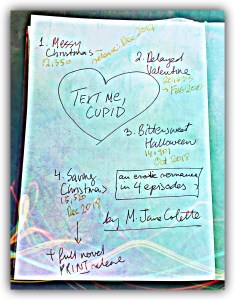 1. Messy
Christmas
12,350
release Dec 2017
2. Delayed
Valentine
Feb 2018
TEXT ME,
CUPID
3. Bittersweet
Halloween
Oct 2018
4. Saving
Christmas
Dec 2018
an erotic romance
in 4 episodes
by M. Jane Colette
+ full novel
PRINT release